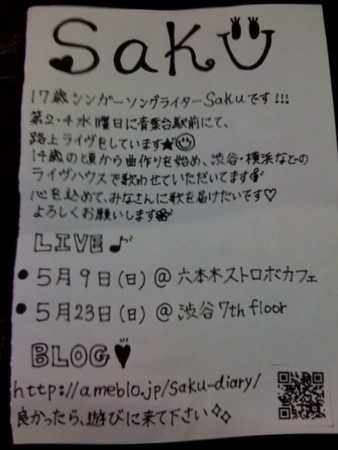 SaKU
17歳シンガーソングライターSakuです!!!
第2・4水曜日に青葉台駅前にて、
路上ライヴをしています★
14歳の頃から曲作りを始め、渋谷・横浜などの
ライヴハウスで歌わせていただいてます
心を込めて、みなさんに歌を届けたいです♡
よろしくお願いします
LIVE♪
●5月9日(日)@六本木ストロボカフェ
●5月23日(日)@渋谷7th floor
BLOG♥
http://ameblo.jp/saku-diary/
良かったら、遊びに来て下さい